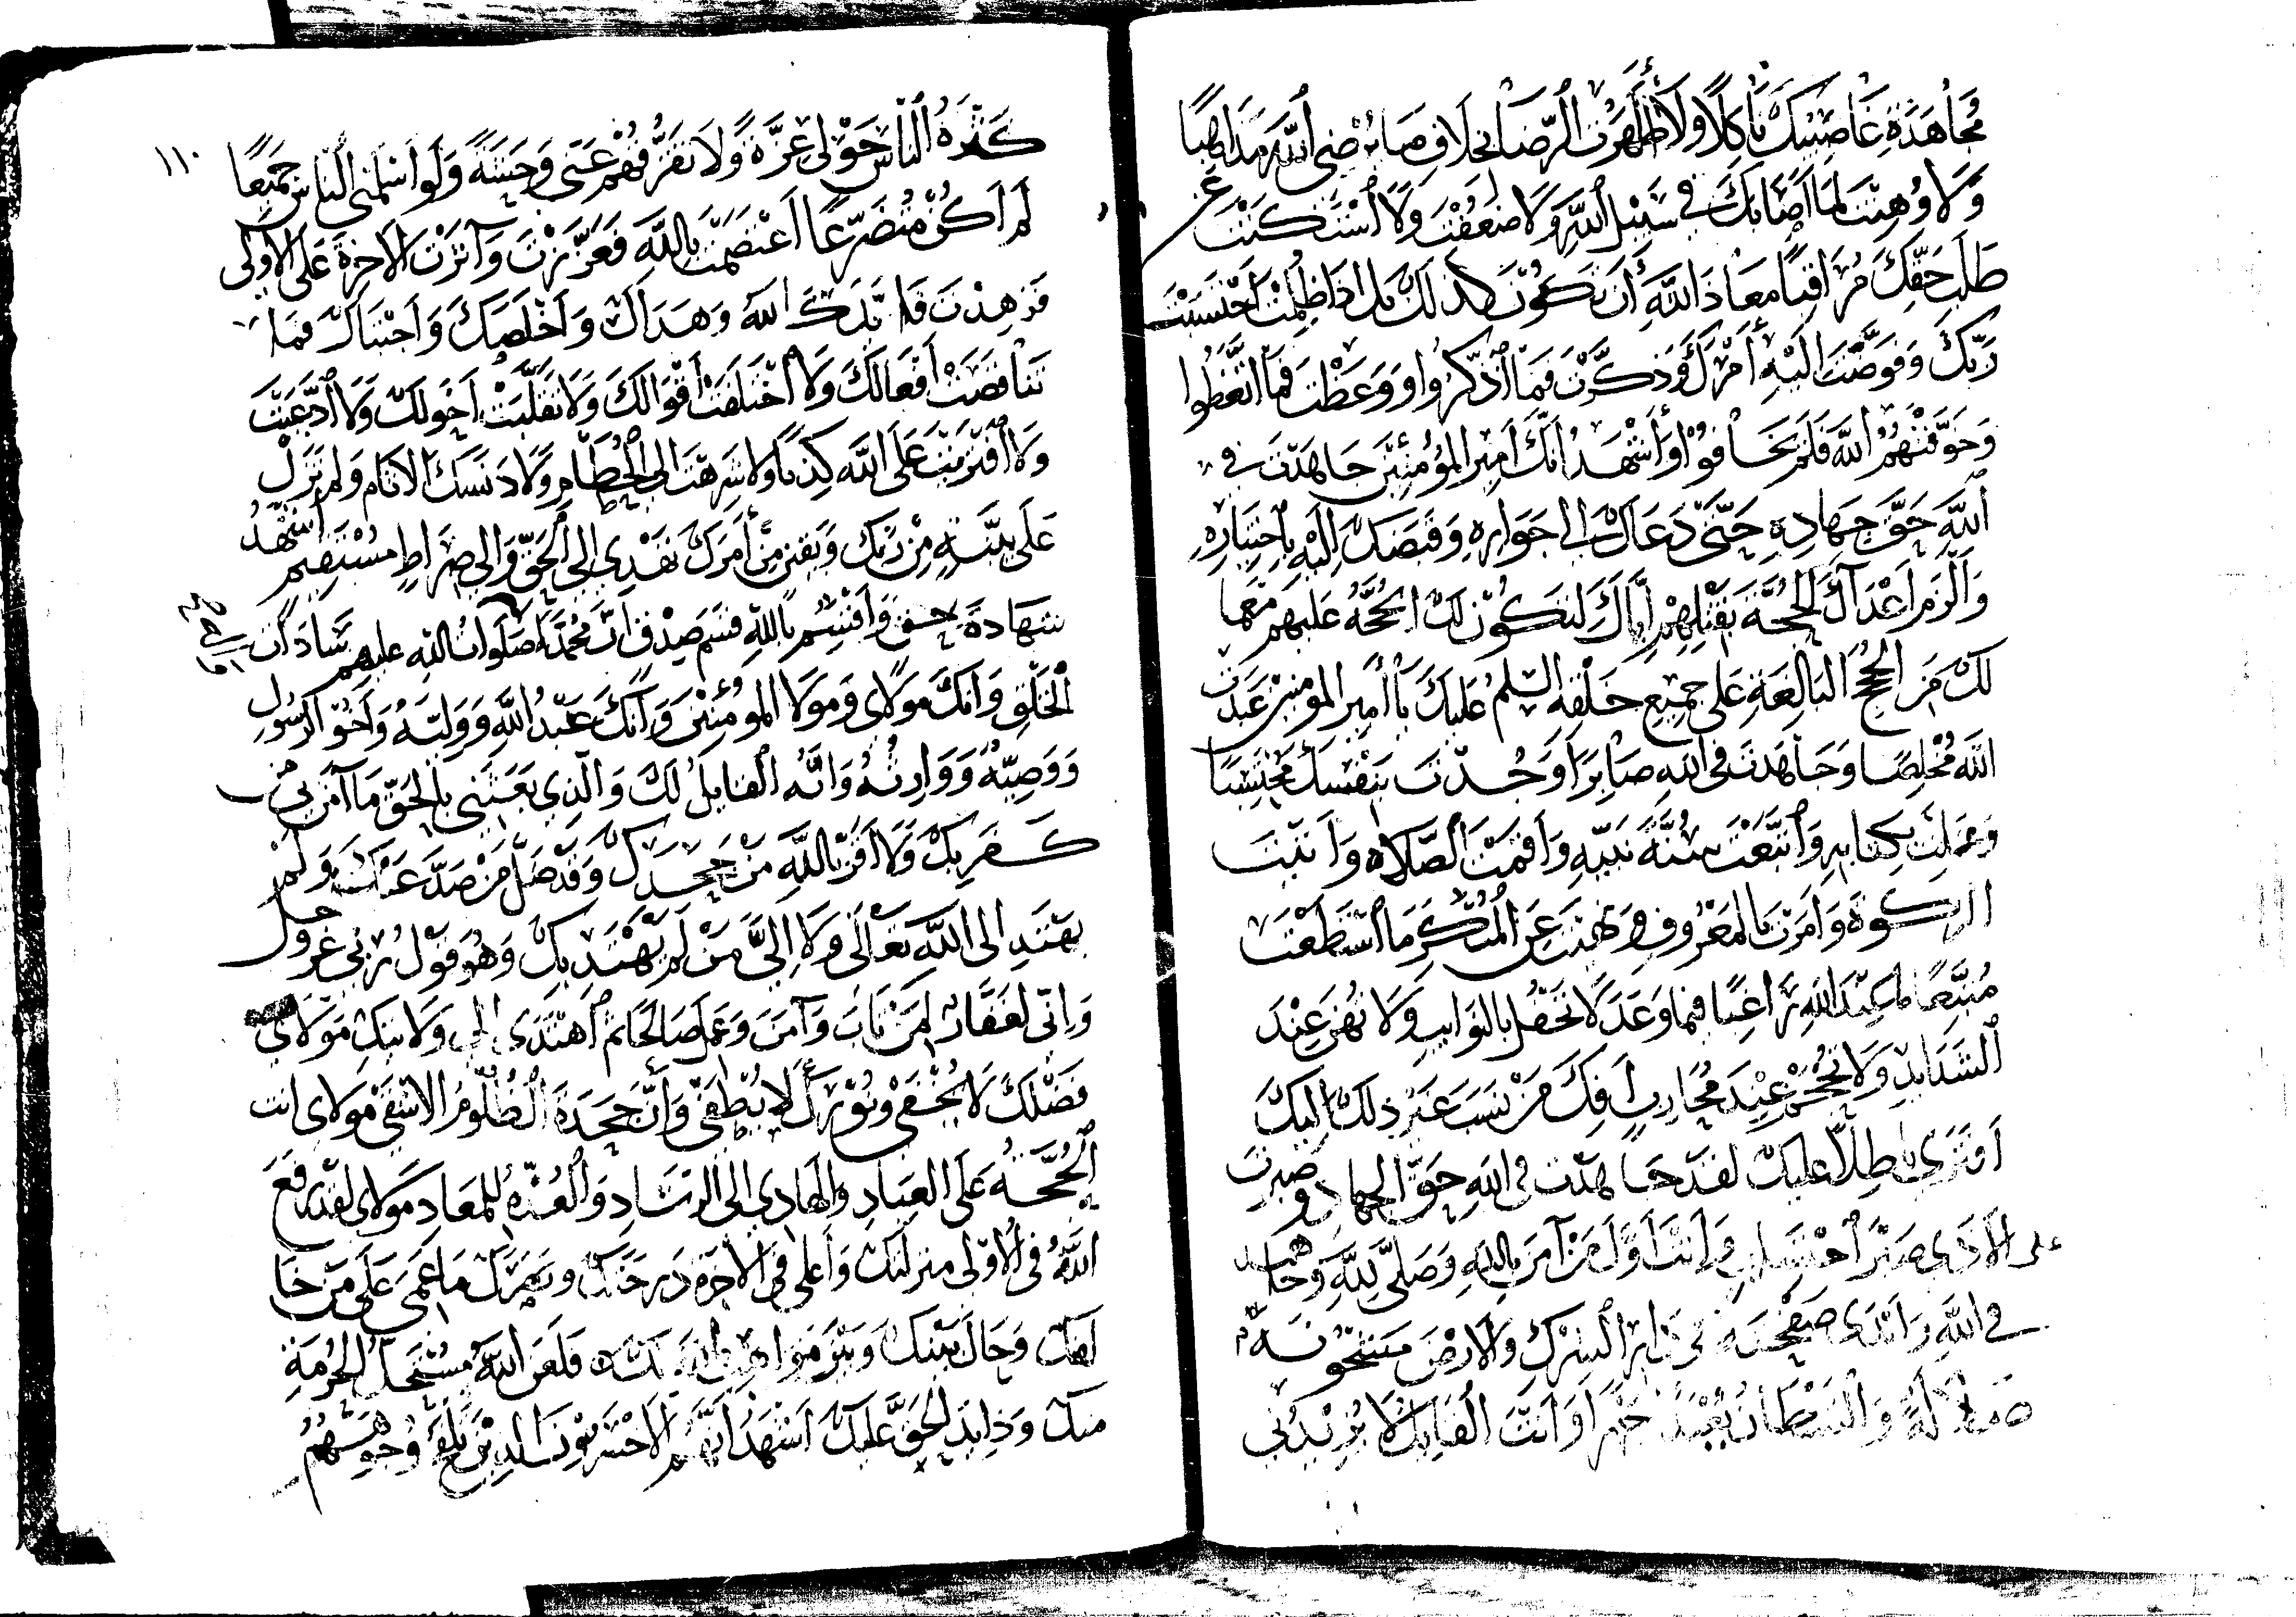 مُجَاهَدَةِ غَاصِبِيكَ نَاكِلًا وَلَا أَظْهَرْتَ الرِّضَا بِخَلَافِ مَا يُرْضِي اللهَ مُدَاهِنًا
وَلَا وَهَنْتَ لِمَا أَصَابَكَ فِي سَبِيلِ اللهِ وَلَا ضَعُفْتَ وَلَا اسْتَكَنْتَ عَنْ
طَلَبِ حَقِّكَ مُرَاقِبًا مَعَاذَ اللهِ أَنْ تَكُونَ كَذَلِكَ بَلْ إِذَا ظُلِمْتَ احْتَسَبْتَ
رَبَّكَ وَفَوَّضْتَ إِلَيْهِ أَمْرَكَ وَذَكَّرْتَ فَمَا اذَّكَرُوا وَوَعَظْتَ فَمَا اتَّعَظُوا
وَخَوَّفْتَهُمُ اللهَ فَلَمْ يَخَافُوا وَأَشْهَدُ أَنَّكَ أَمِيرَ الْمُؤْمِنِينَ جَاهَدْتَ فِي
اللهِ حَقَّ جِهَادِهِ حَتَّى دَعَاكَ إِلَى جِوَارِهِ وَقَبَضَكَ إِلَيْهِ بِاخْتِيَارِهِ
وَأَلْزَمَ أَعْدَآءَكَ الْحُجَّةَ بِقَتْلِهِمْ إِيَّاكَ لِتَكُونَ لَكَ الْحُجَّةُ عَلَيْهِمْ مَعَ مَا
لَكَ مِنَ الْحُجَجِ الْبَالِغَةِ عَلَى جَمِيعِ خَلْقِهِ السَّلَمُ عَلَيْكَ يَا أَمِيرَ الْمُومِنِينَ عَبَدْتَ
اللهَ مُخْلِصًا وَجَاهَدْتَ فِي اللهِ صَابِرًا وَجُدْتَ بِنَفْسِكَ مُحْتَسِبًا
وَعَمِلْتَ بِكِتَابِهِ وَاتَّبَعْتَ سُنَّةَ نَبِيِّهِ وَأَقَمْتَ الصَّلَاةَ وَآتَيْتَ
الزَّكَوةَ وَأَمَرْتَ بِالْمَعْرُوفِ وَنَهَيْتَ عَنِ الْمُنْكَرِ مَا اسْتَطَعْتَ
مُتَّبِعًا مَا عِنْدَ اللهِ رَاغِبًا فِيمَا وَعَدَ لَا تَحْفِلُ بِالنَّوَايِبِ وَلَا تَهِنُ عِنْدَ
الشَّدَايِدِ وَلَا تُحْجِمُ عِنْدَ مُحَارِبٍ أَفِكَ مَنْ نَسَبَ غَيْرَ ذَلِكَ إِلَيْكَ
افْتَرَى بَاطِلًا عَلَيْكَ لَقَدْ جَاهَدْتَ فِي اللهِ حَقَّ الْجِهَادِ وَصَبَرْتَ
عَلَى الْأَذَى صَبْرَ احْتِسَابٍ وَأَنْتَ أَوَّلُ مَنْ آمَنَ بِاللهِ وَصَلَّى لِلهِ وَجَاهَدَ
فِي اللهِ وَأَبْدَى صَفْحَتَهُ فِي دَارِ الشِّرْكِ وَالْأَرْضُ مَشْحُونَةٌ
ضَلَالَةً وَالشَّيْطَانُ يُعْبَدُ جَهْرًا وَأَنْتَ الْقَايِلُ لَا تَزِيدُنِي
١١٠
كَثْرَةُ النَّاسِ حَوْلِي عِزَّةً وَلَا تَفَرُّقُهُمْ عَنِّي وَحْشَةً وَلَوْ أَسْلَمَنِي النَّاسُ جَمِيعًا
لَمْ أَكُنْ مُتَضَرِّعًا اعْتَصَمْتَ بِاللهِ فَعَزَزْتَ وَآثَرْتَ الْآخِرَةَ عَلَى الْأُولَى
فَزَهِدْتَ فَأَيَّدَكَ اللهُ وَهَدَاكَ وَأَخْلَصَكَ وَاجْتَبَاكَ فَمَا
تَنَاقَضَتْ أَفْعَالُكَ وَلَا اخْتَلَفَتْ أَقْوَالُكَ وَلَا تَقَلَّبَتْ أَحْوَلُكَ وَلَا ادَّعَيْتَ
وَلَا افْتَرَيْتَ عَلَى اللهِ كَذِبًا وَلَا شَرِهْتَ إِلَى الْحُطَامِ وَلَا دَنَّسَكَ الْآثَامُ وَلَمْ تَزَلْ
عَلَى بَيِّنَةٍ مِنْ رَبِّكَ وَيَقِينٍ مِنْ أَمْرِكَ تَهْدِي إِلَى الْحَقِّ وَإِلَى صِرَاطٍ مُسْتَقِيمٍ أَشْهَدُ
شَهَادَةَ حَقٍّ وَأُقْسِمُ بِاللهِ قَسَمَ صِدْقٍ أَنَّ مُحَمَّدًا صَلَوَاتُ اللهِ عَلَيْهِمْ سَادَاتُ
وآله صح
الْخَلْقِ وَأَنَّكَ مَوْلَايَ وَمَوْلَا الْمُومِنِينَ وَأَنَّكَ عَبْدُ اللهِ وَوَلِيُّهُ وَأَخُو الرَّسُولِ
وَوَصِيُّهُ وَوَارِثُهُ وَأَنَّهُ الْقَايِلُ لَكَ وَالَّذِي بَعَثَنِي بِالْحَقِّ مَا آمَنَ بِي مَنْ
كَفَرَ بِكَ وَلَا أَقَرَّ بِاللهِ مَنْ جَحَدَكَ وَقَدْ ضَلَّ مَنْ صَدَّ عَنْكَ وَلَمْ
يَهْتَدِ إِلَى اللهِ تَعَالَى وَلَا إِلَيَّ مَنْ لَمْ يَهْتَدِ بِكَ وَهُوَ قَوْلُ رَبِّي عَزَّ وَجَلَّ
وَإِنِّي لَغَفَّارٌ لِمَنْ تَابَ وَآمَنَ وَعَمِلَ صَالِحًا ثُمَّ اهْتَدَى إِلَى وَلَايَتِكَ مَوْلَايَ
فَضْلُكَ لَا يَخْفَى وَنُورُكَ لَا يُطْفَى وَأَنَّ جَحَدَةَ الظَّلُومُ الْأَشْقَى مَوْلَايَ أَنْتَ
الْحُجَّةُ عَلَى الْعِبَادِ وَالْهَادِي إِلَى الرَّشَادِ وَالْعُدَّةُ لِلْمَعَادِ مَوْلَايَ لَقَدْ رَفَعَ
اللهُ فِي الْأُولَى مَنْزِلَتَكَ وَأَعْلَى فِي الْآخِرَةِ دَرَجَتَكَ وَبَصَّرَكَ مَا عَمِيَ عَلَى مَنْ خَا
لَفَكَ وَحَالَ بَيْنَكَ وَبَيْنَ مَوَاهِبِ اللهِ لَكَ فَلَعَنَ اللهُ مُسْتَحِلَّ الْحُرْمَةِ
مِنْكَ وَذَايِدَ الْحَقِّ عَلَيْكَ أَشْهَدُ أَنَّهُمُ الْأَخْسَرُونَ الَّذِينَ تَلْفَحُ وُجُوهَهُمْ